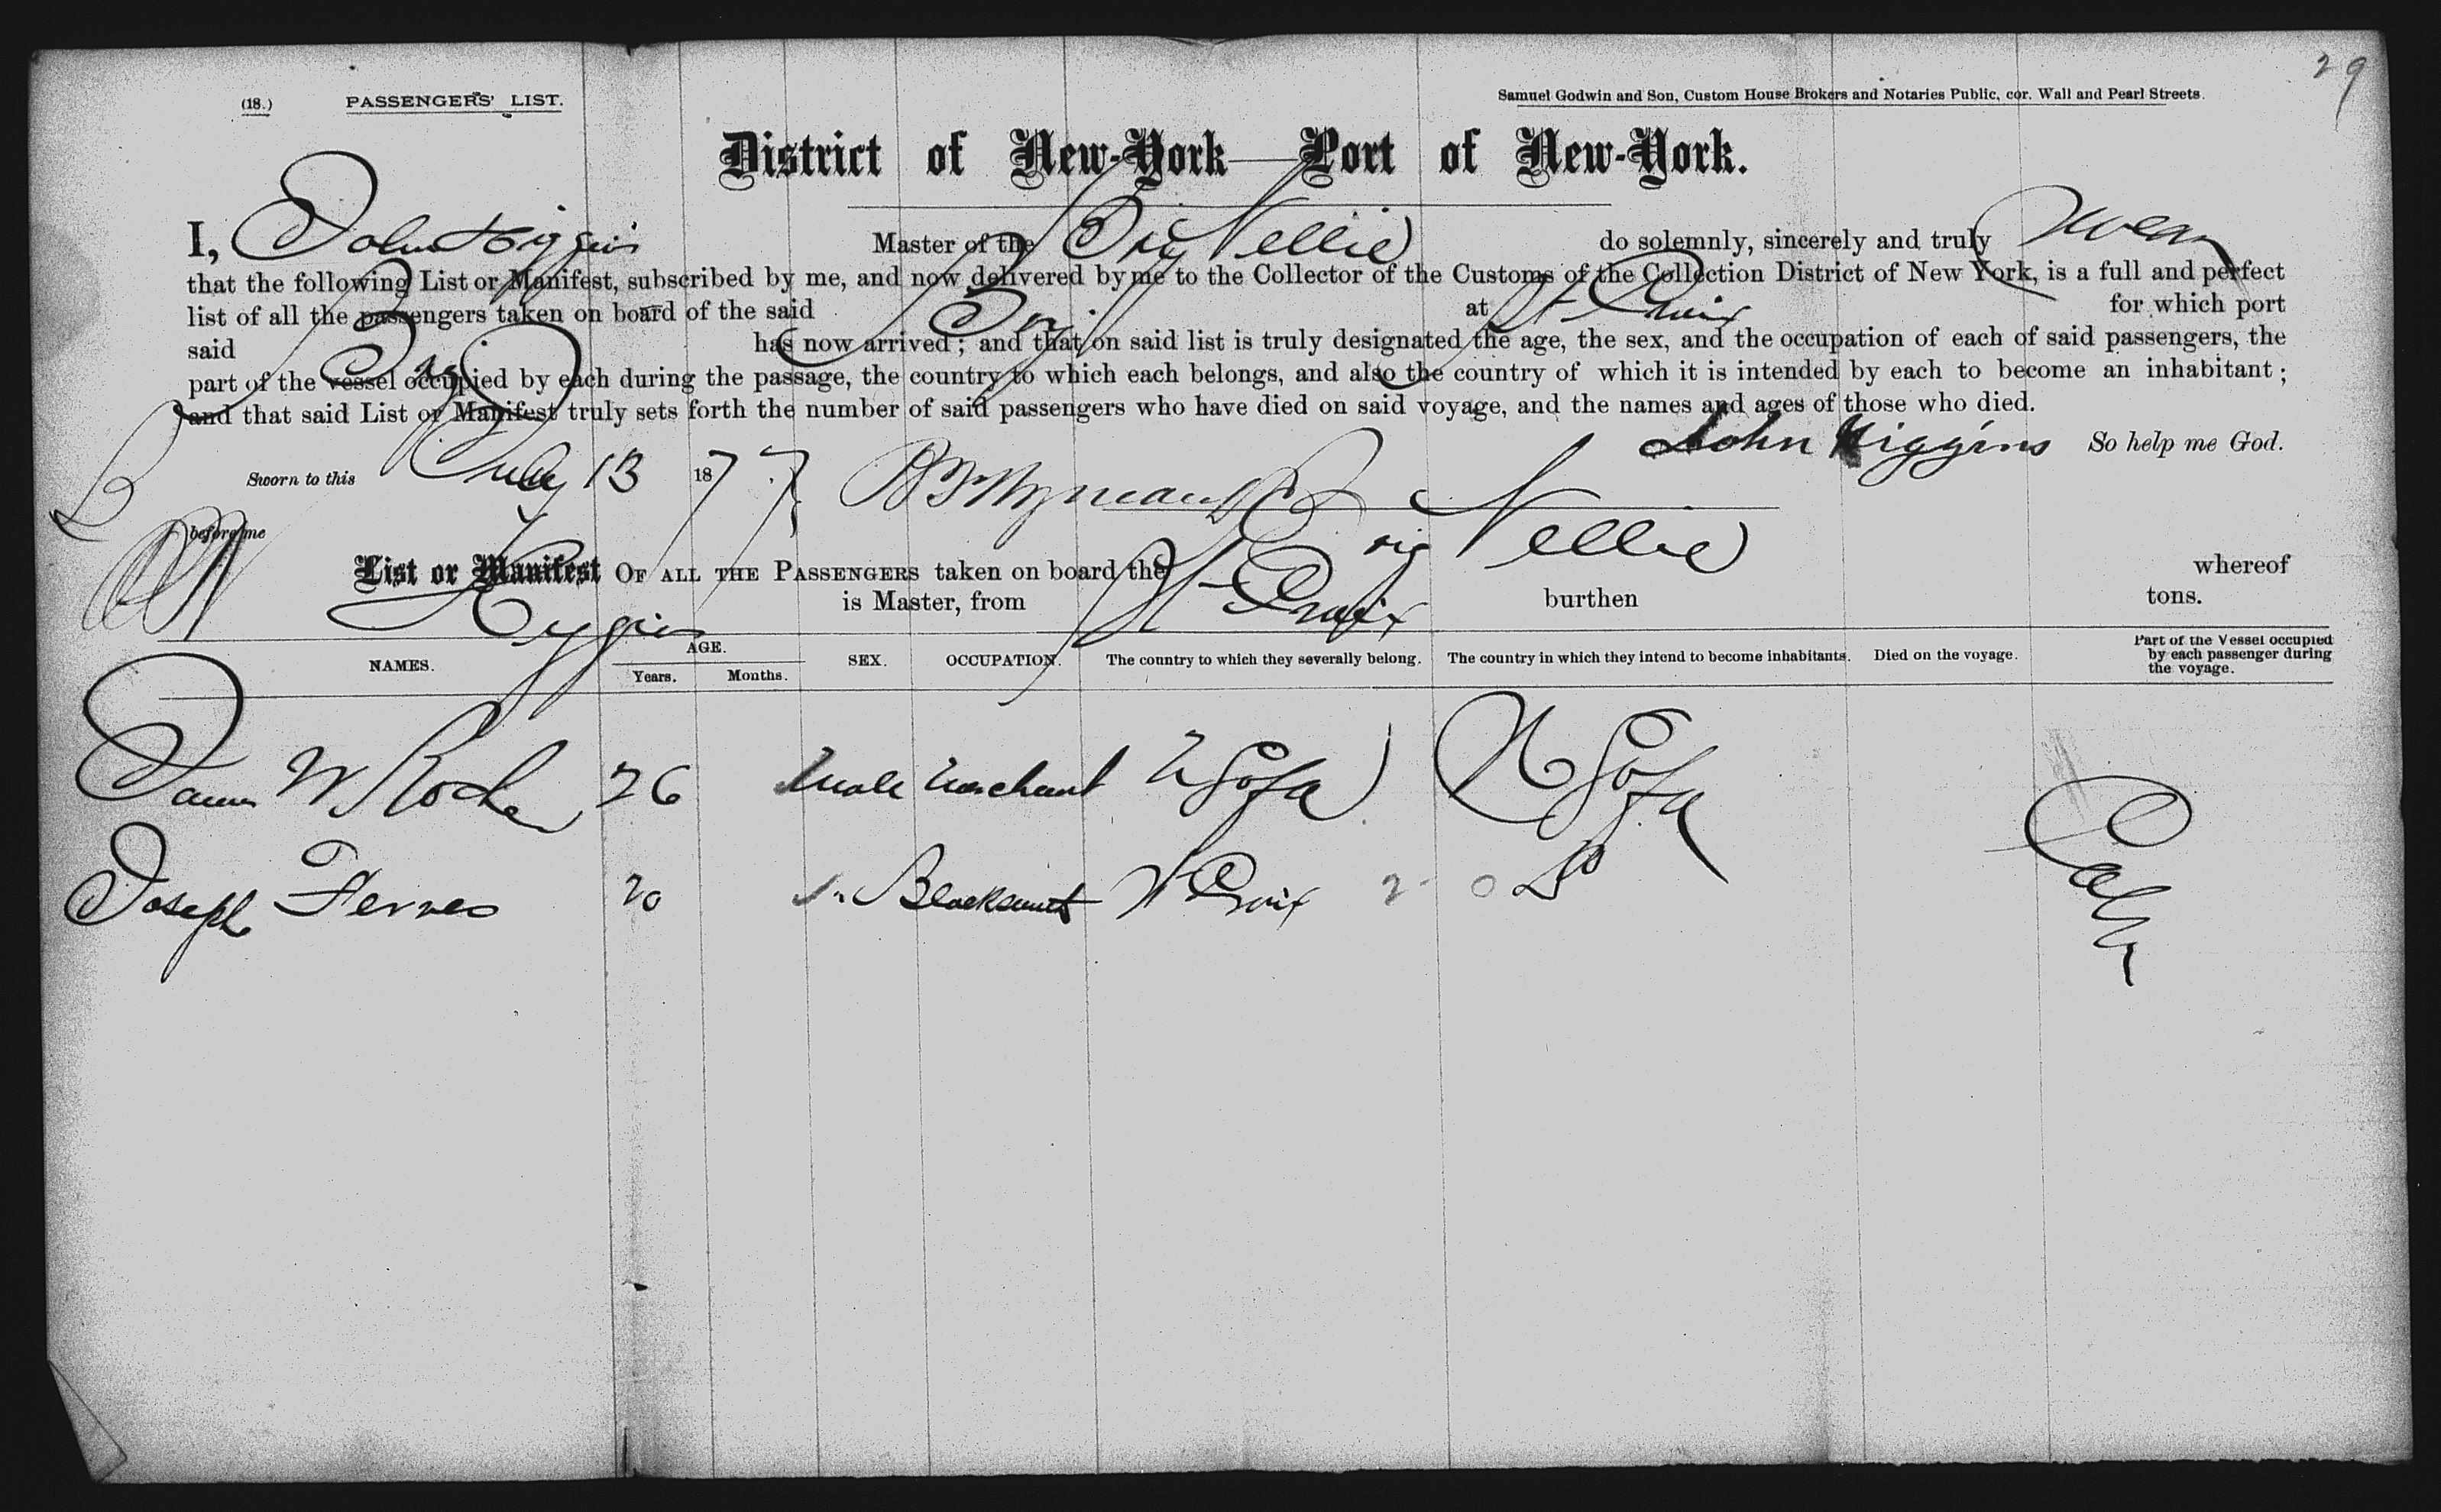 29
(18.) PASSENGERS' LIST. Samuel Godwin and Son, Custom House Brokers and Notaries Public, cor. Wall and Pearl Streets.
District of New-York—Port of New-York.
I, John Higgins Master of the Brig Nellie do solemnly, sincerely and truly swear
that the following List or Manifest, subscribed by me, and now delivered by me to the Collector of the Customs of the Collection District of New York, is a full and perfect
list of all the passengers taken on board of the said Brig at St Croix for which port
said Brig has now arrived; and that on said list is truly designated the age, the sex, and the occupation of each of said passengers, the
part of the vessel occupied by each during the passage, the country to which each belongs, and also the country of which it is intended by each to become an inhabitant;
and that said List or Manifest truly sets forth the number of said passengers who have died on said voyage, and the names and ages of those who died.
John Higgins So help me God.
Sworn to this July 13 1877
before me
List or Manifest OF ALL THE PASSENGERS taken on board the Brig Nellie whereof
Higgins is Master, from St Croix burthen tons.
NAMES. AGE. Years. Months. SEX. OCCUPATION. The country to which they severally belong. The country in which they intend to become inhabitants. Died on the voyage. Part of the Vessel occupied by each passenger during the voyage.
W 26 Male Merchant U S of A U S of A Cabin
Joseph 20 Blacksmith St Croix Do